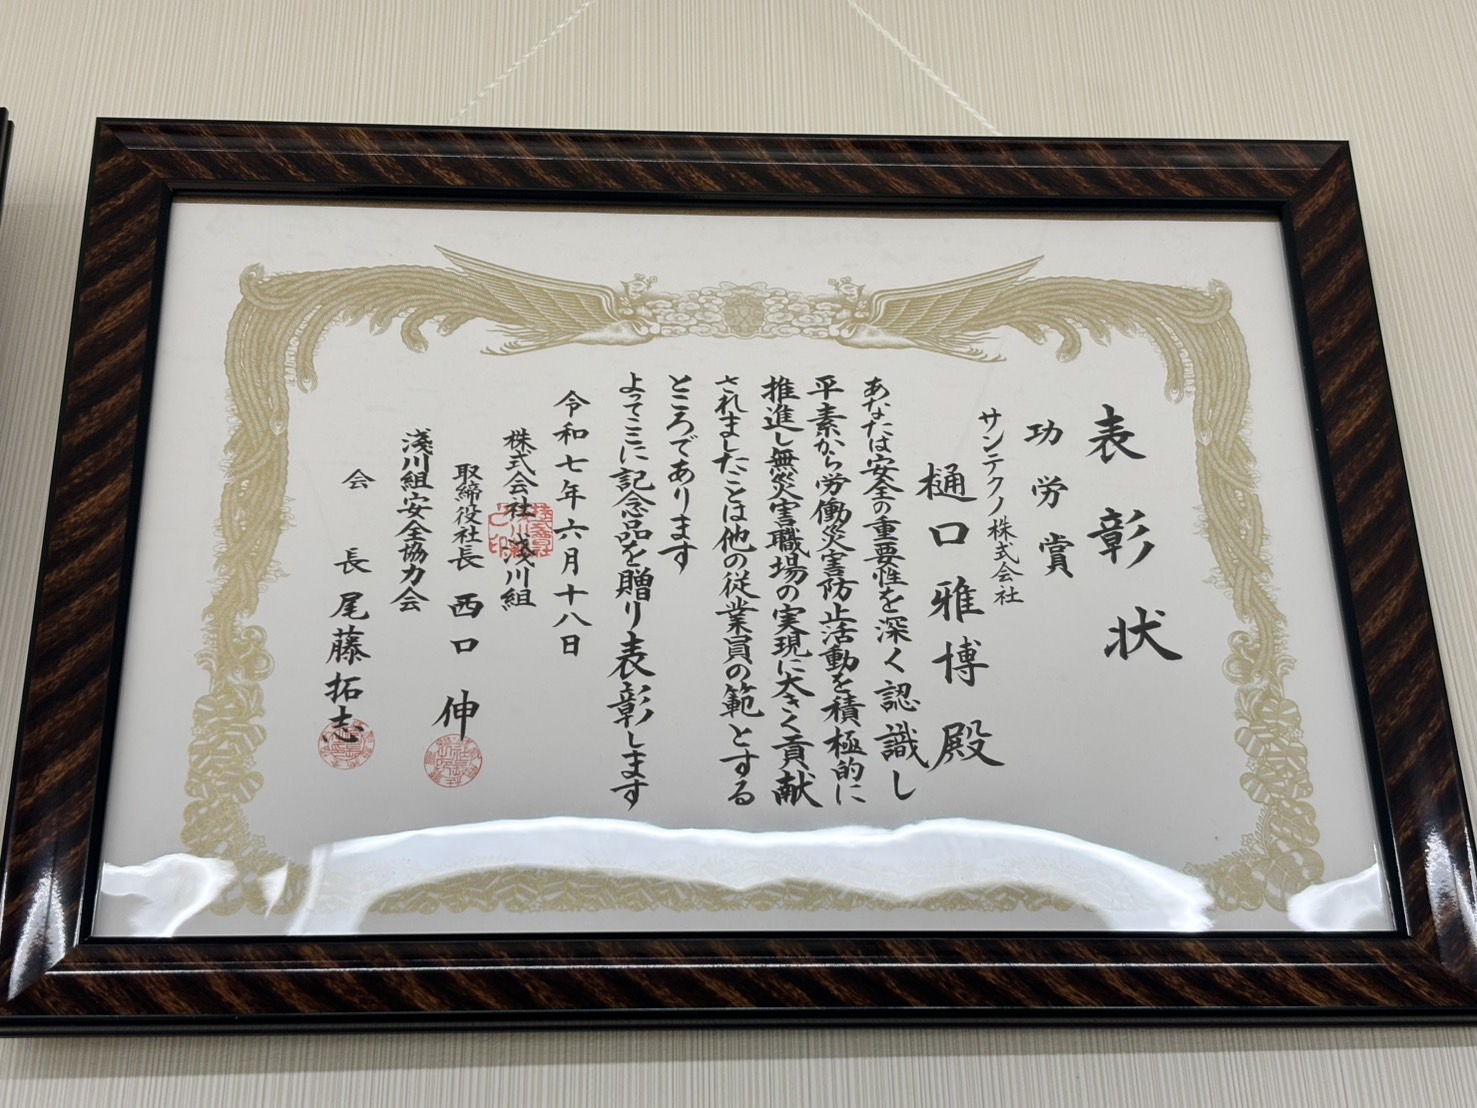 表彰状
功労賞
サンテクノ株式会社
樋口雅博殿
あなたは安全の重要性を深く認識し
平素から労働災害防止活動を積極的に
推進し無災害職場の実現に大きく貢献
されましたことは他の従業員の範とする
ところであります
よってここに記念品を贈り表彰します
令和七年六月十八日
株式会社淺川組
取締役社長 西口伸
淺川組安全協力会
会長 尾藤拓志